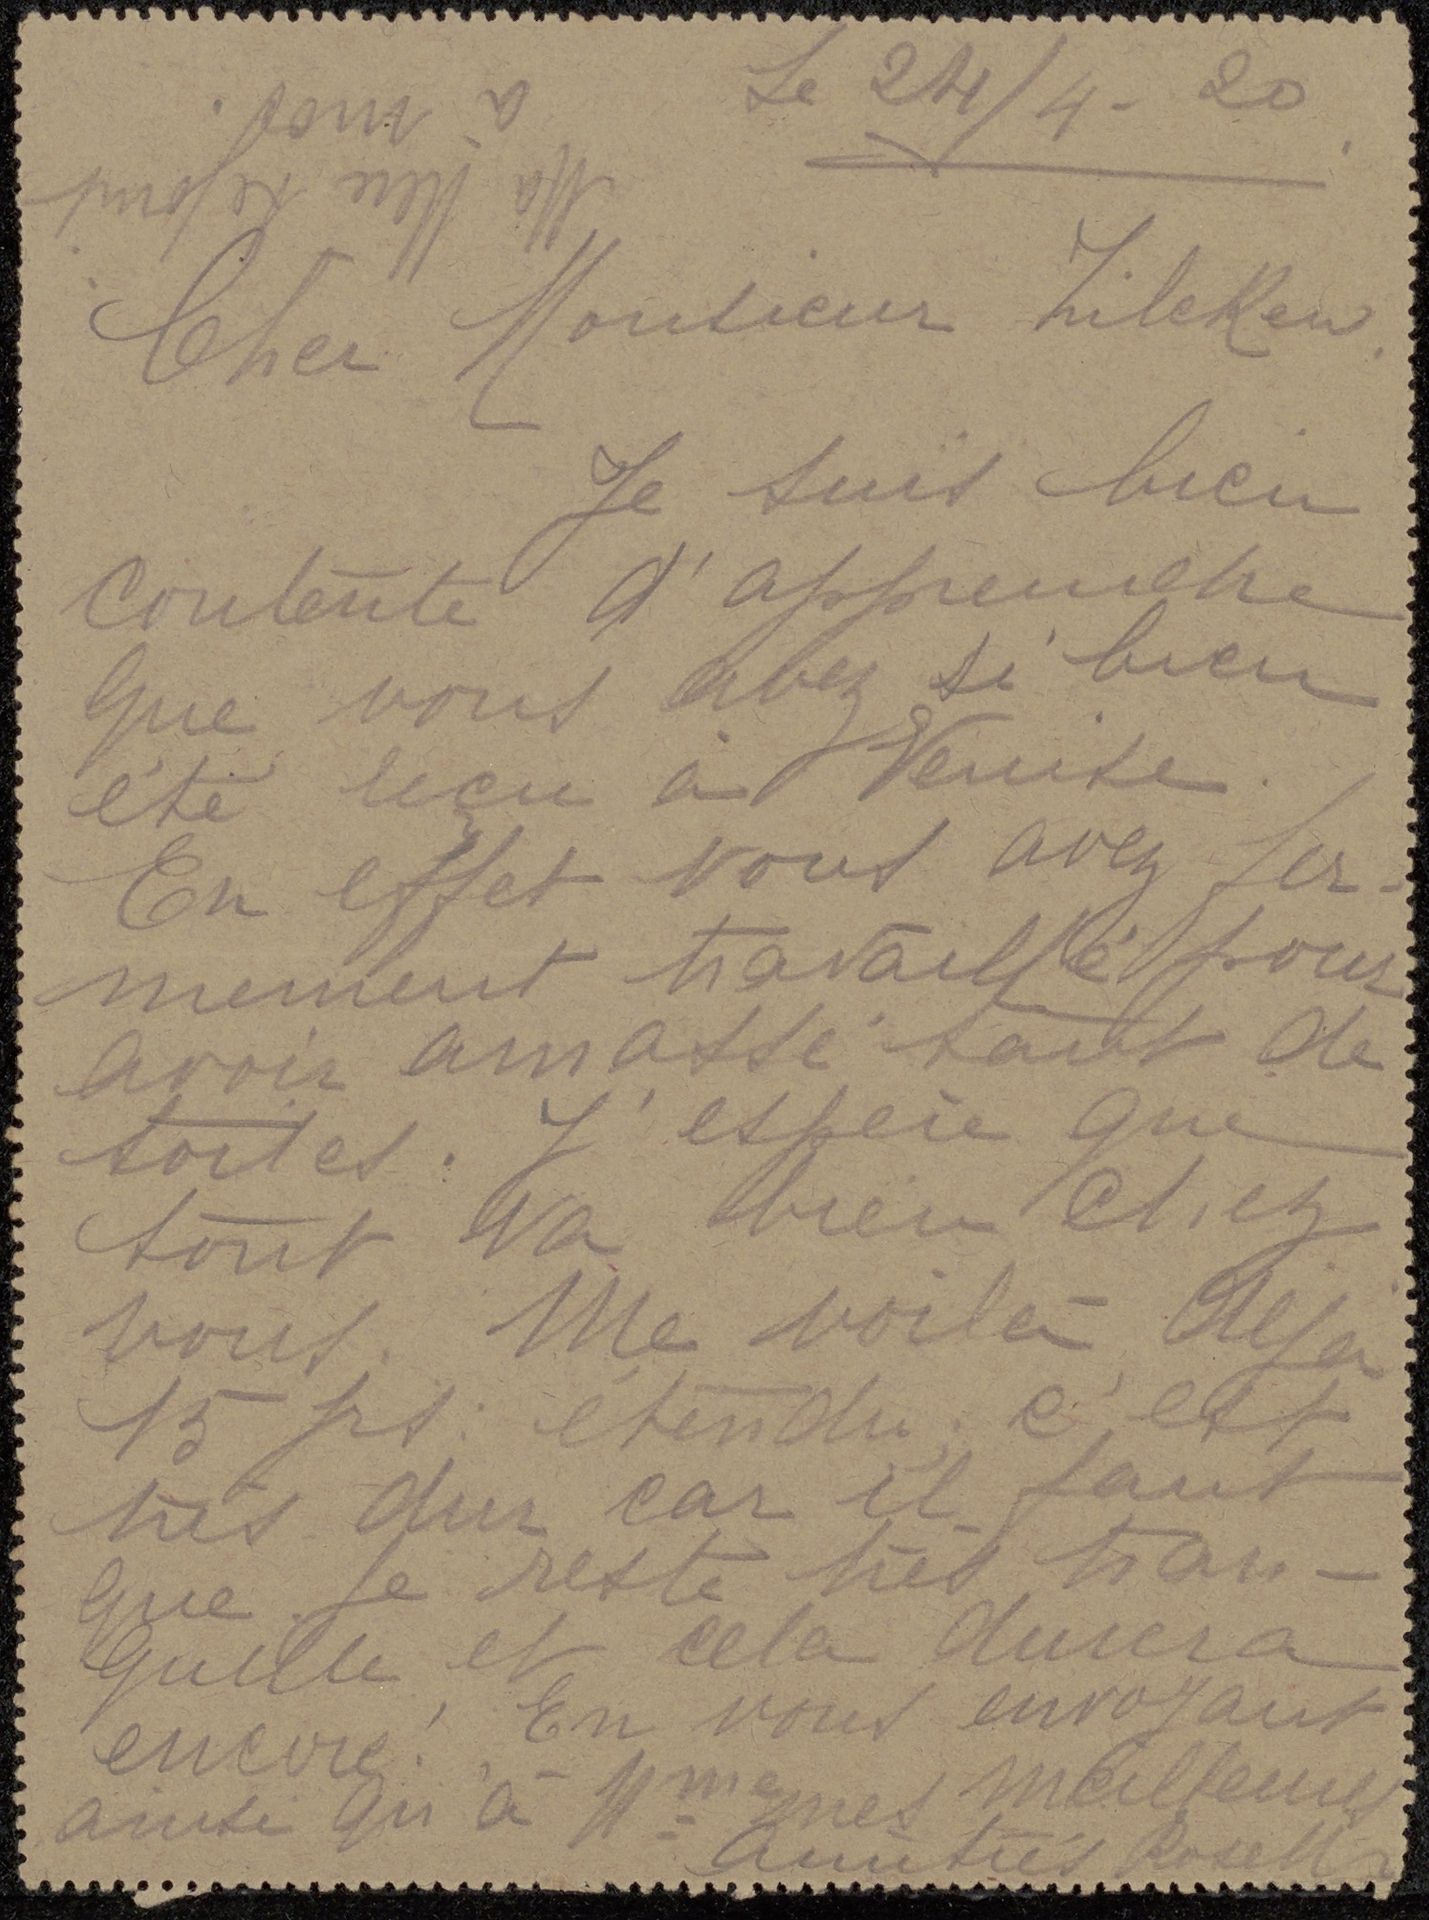 Le 24/4 - 20.
Cher Monsieur Zilcken.
Je suis bien
contente d'apprendre
que vous avez si bien
été reçu à Venise.
En effet vous avez fer-
mement travaillé pour
avoir amassé tant de
toiles. J'espère que
tout va bien chez
vous. Me voilà déjà
15 js: étendu; c'est
très dur car il faut
que je reste très tran-
quille et cela durera
encore! En vous envoyant
ainsi qu'à Mme mes meilleures
amitiés
Ma
à moi.